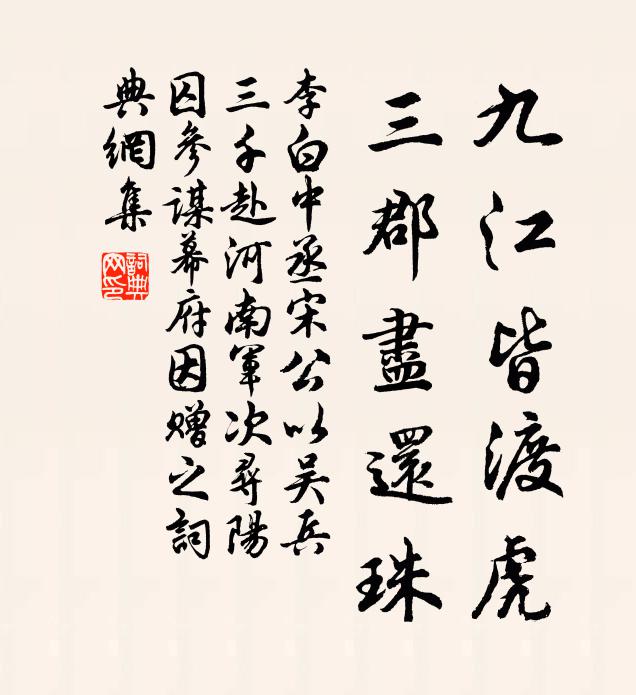 九江皆渡虎
三郡盡還珠
李白中丞宋公以吴兵
三千赴河南軍次尋陽
囚參謀幕府因赠之詞
典網集
詞典网印